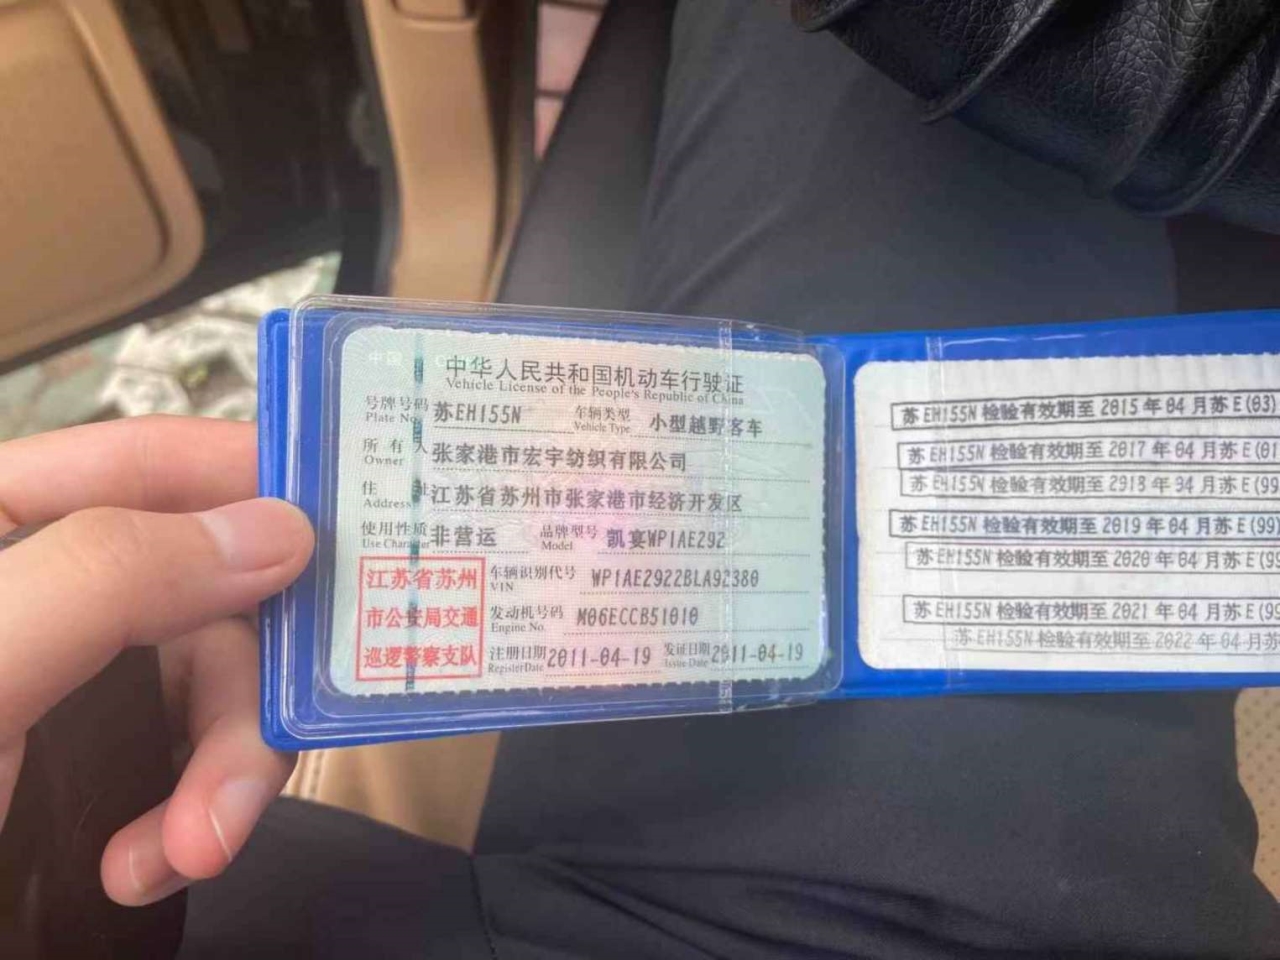 中华人民共和国机动车行驶证
Vehicle License of the People's Republic of China
号牌号码 苏EH155N 车辆类型 小型越野客车
Plate No. Vehicle Type
所有人 张家港市宏宇纺织有限公司
Owner
住址 江苏省苏州市张家港市经济开发区
Address
使用性质 非营运 品牌型号 凯宴WP1AE292
Use Character Model
江苏省苏州
市公安局交通
巡逻警察支队
车辆识别代号 WP1AE2922BLA92380
VIN
发动机号码 M06ECCB51010
Engine No.
注册日期 2011-04-19 发证日期 2011-04-19
Register Date Issue Date
苏EH155N 检验有效期至 2015年04月苏E(03)
苏EH155N 检验有效期至 2017年04月苏E(01
苏EH155N 检验有效期至 2018年04月苏E(99
苏EH155N 检验有效期至 2019年04月苏E(99)
苏EH155N 检验有效期至 2020年04月苏E(99
苏EH155N 检验有效期至 2021年04月苏E(99
苏EH155N 检验有效期至 2022年04月苏